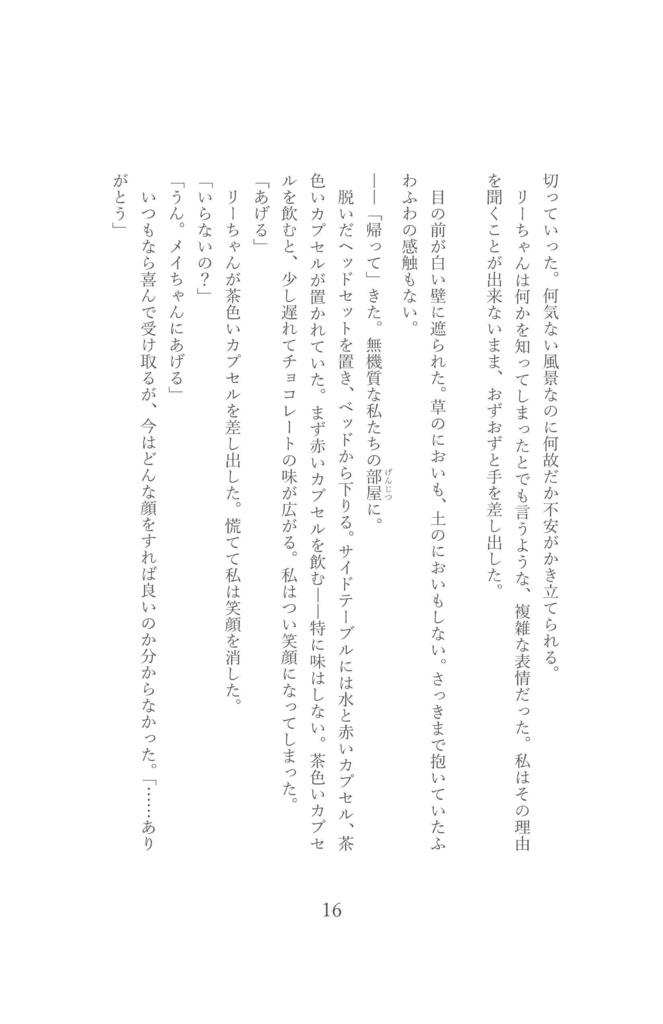 切っていった。何気ない風景なのに何故だか不安がかき立てられる。
　リーちゃんは何かを知ってしまったとでも言うような、複雑な表情だった。私はその理由
を聞くことが出来ないまま、おずおずと手を差し出した。
　目の前が白い壁に遮られた。草のにおいも、土のにおいもしない。さっきまで抱いていたふ
わふわの感触もない。
――「帰って」きた。無機質な私たちの部屋に。
げんじつ
　脱いだヘッドセットを置き、ベッドから下りる。サイドテーブルには水と赤いカプセル、茶
色いカプセルが置かれていた。まず赤いカプセルを飲む――特に味はしない。茶色いカプセ
ルを飲むと、少し遅れてチョコレートの味が広がる。私はつい笑顔になってしまった。
「あげる」
　リーちゃんが茶色いカプセルを差し出した。慌てて私は笑顔を消した。
「いらないの？」
「うん。メイちゃんにあげる」
　いつもなら喜んで受け取るが、今はどんな顔をすれば良いのか分からなかった。「……あり
がとう」
16